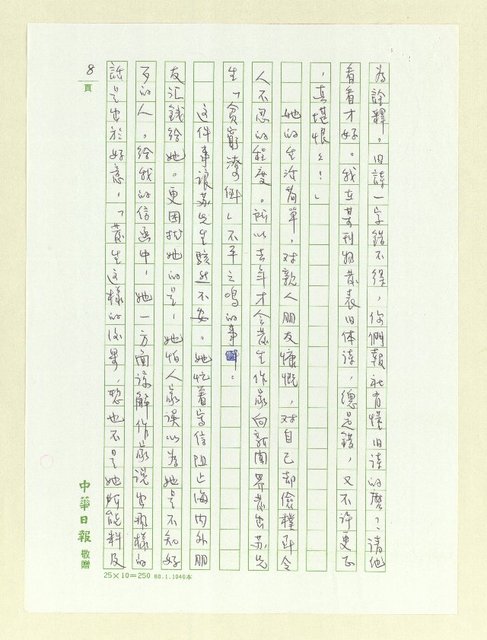 為詮釋,旧詩一字錯不得,你們報社有懂旧詩的麼?請他
看看才好。我在某刊物發表旧体詩,總是錯,又不許更正
,真堪恨々!」
她的生活簡單,對親人朋友慷慨,對自己却儉樸到令
人不忍的程度。所以去年才會發生作家向新聞界發出蘇先
生「貧窮潦倒」不平之鳴的事
這件事讓蘇先生駭然不安。她忙着寫信阻止海內外朋
友汇錢給她。更困扰她的是,她怕人家误以為她是不知好
歹的人,給我的信函中,她一方面諒解作家說出那樣的
話是出於好意,「發生這樣的後果,恐也不是她所能料及
8
頁
中華日報 敬贈
25×10=250 80.1.1000本